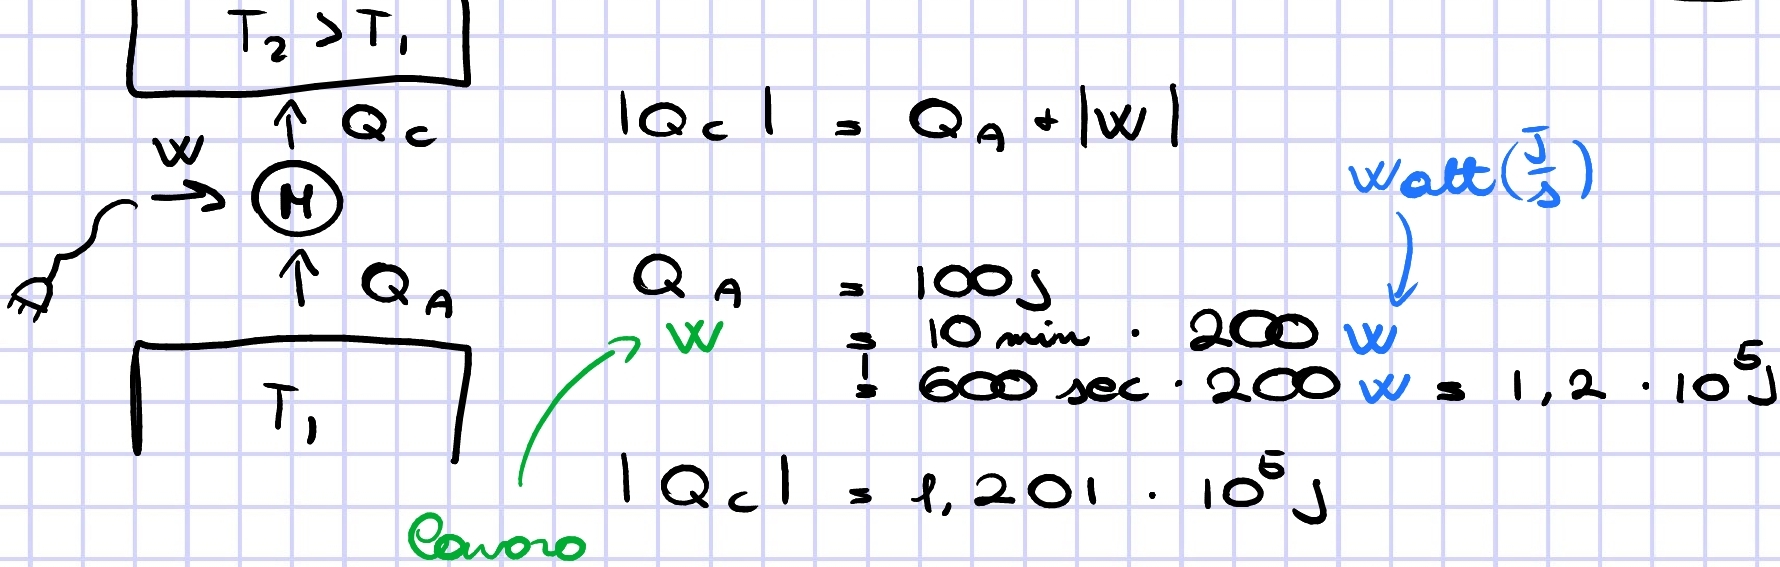 T₂ > T₁
Q_C
|Q_C| = Q_A + |W|
W
M
Watt (J/s)
Q_A
Q_A = 100 J
W = 10 min · 200 W
= 600 sec · 200 W = 1,2 · 10⁵ J
T₁
|Q_C| = 1,201 · 10⁵ J
Lavoro